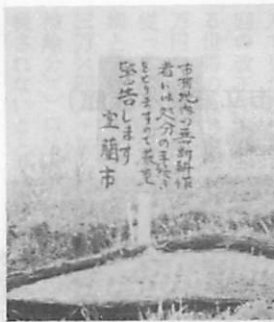 市有地内の無断耕作
者には処分の手続き
をとりますので厳重
警告します
室蘭市